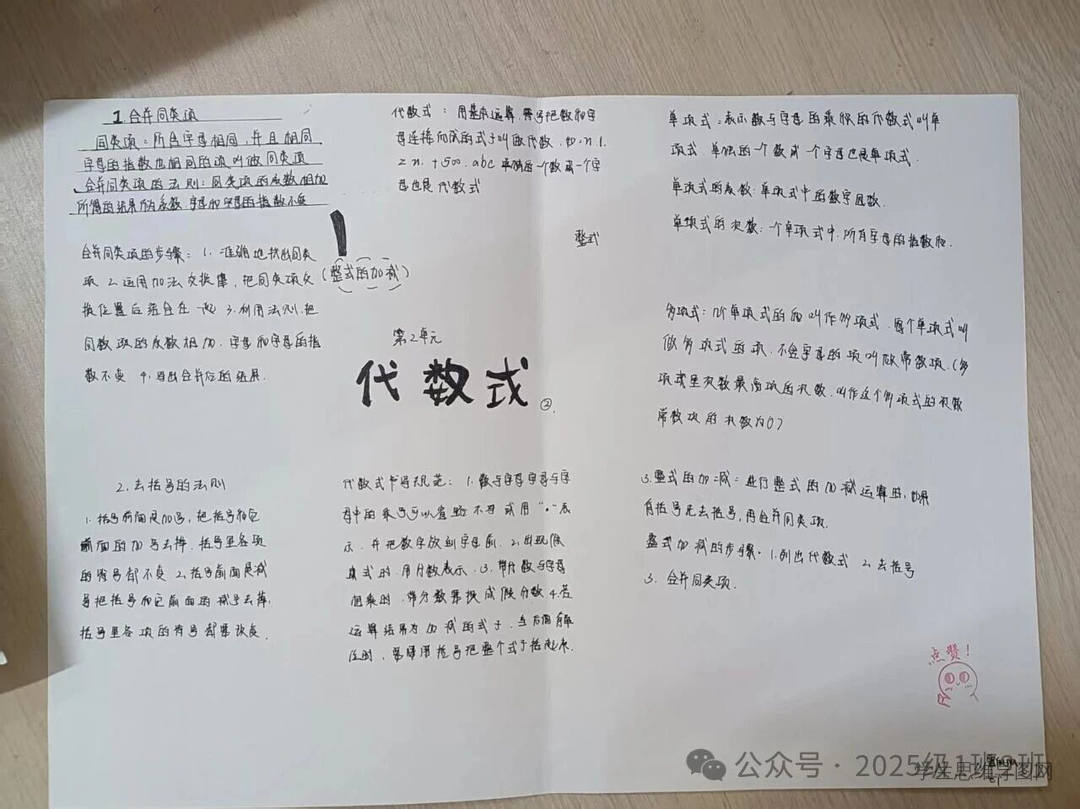 1 合并同类项
同类项：所含字母相同，并且相同
字母的指数也相同的项叫做同类项
合并同类项的法则：同类项的系数相加
所得的结果作为系数，字母和字母的指数不变
合并同类项的步骤：1. 准确地找出同类
项 2. 运用加法交换律，把同类项交
换位置后结合在一起 3. 利用法则，把
同类项的系数相加，字母和字母的指
数不变 4. 写出合并后的结果.
2. 去括号的法则
1. 括号前面是加号，把括号和它
前面的加号去掉，括号里各项
的符号都不变 2. 括号前面是减
号把括号和它前面的减号去掉，
括号里各项的符号都要改变.
代数式：用基本运算符号把数和字
母连接而成的式子叫做代数，如：n.1.
2n.+500.abc 单独的一个数或一个字
母也是代数式
整式
(整式的加减)
第2单元
代数式
②.
代数式书写规范：1. 数与字母字母与字
母中的乘号可以省略不写或用“·”表
示，并把数字放到字母前. 2. 出现除
式时，用分数表示. 3. 带分数与字母
相乘时，带分数要换成假分数 4. 若
运算结果为加减的式子，当后面有单
位时，要用括号把整个式子括起来.
单项式：表示数与字母的乘积的代数式叫单
项式. 单独的一个数或一个字母也是单项式.
单项式的系数：单项式中的数字因数.
单项式的次数：一个单项式中，所有字母的指数和.
多项式：几个单项式的和叫作多项式. 每个单项式叫
做多项式的项. 不含字母的项叫做常数项. (多
项式里次数最高项的次数，叫作这个多项式的次数
常数项的次数为0)
3. 整式的加减：进行整式的加减运算时，如果
有括号先去括号，再合并同类项.
整式加减的步骤. 1. 列出代数式 2. 去括号
3. 合并同类项.
点赞！
公众号 · 2025级1班2班
学生思维导图网